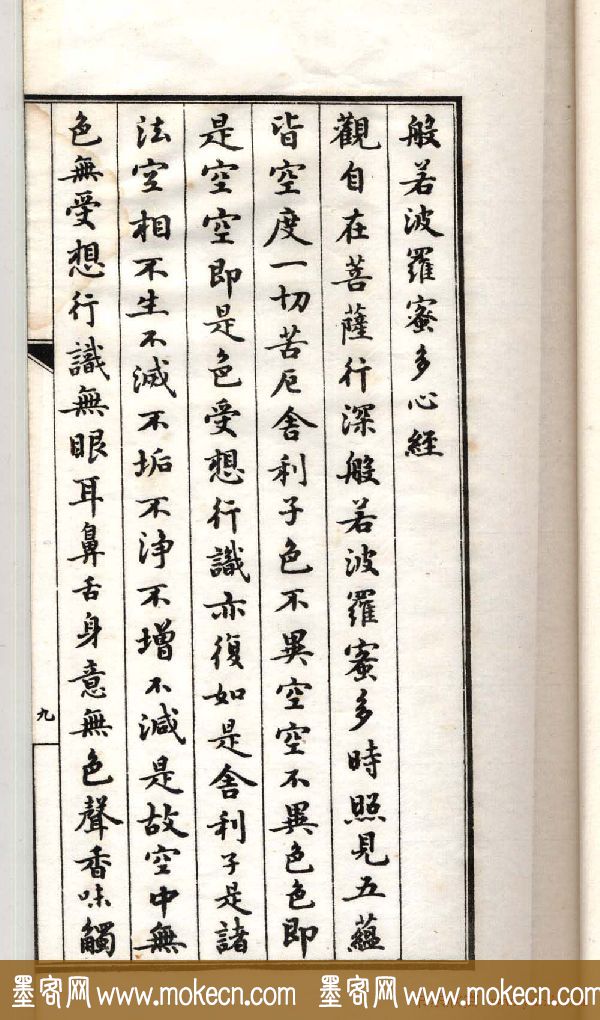 般若波羅蜜多心經
觀自在菩薩行深般若波羅蜜多時照見五蘊
皆空度一切苦厄舍利子色不異空空不異色色即
是空空即是色受想行識亦復如是舍利子是諸
法空相不生不滅不垢不淨不增不減是故空中無
色無受想行識無眼耳鼻舌身意無色聲香味觸
九
墨客网 www.mokecn.com 墨客网 www.mokecn.com